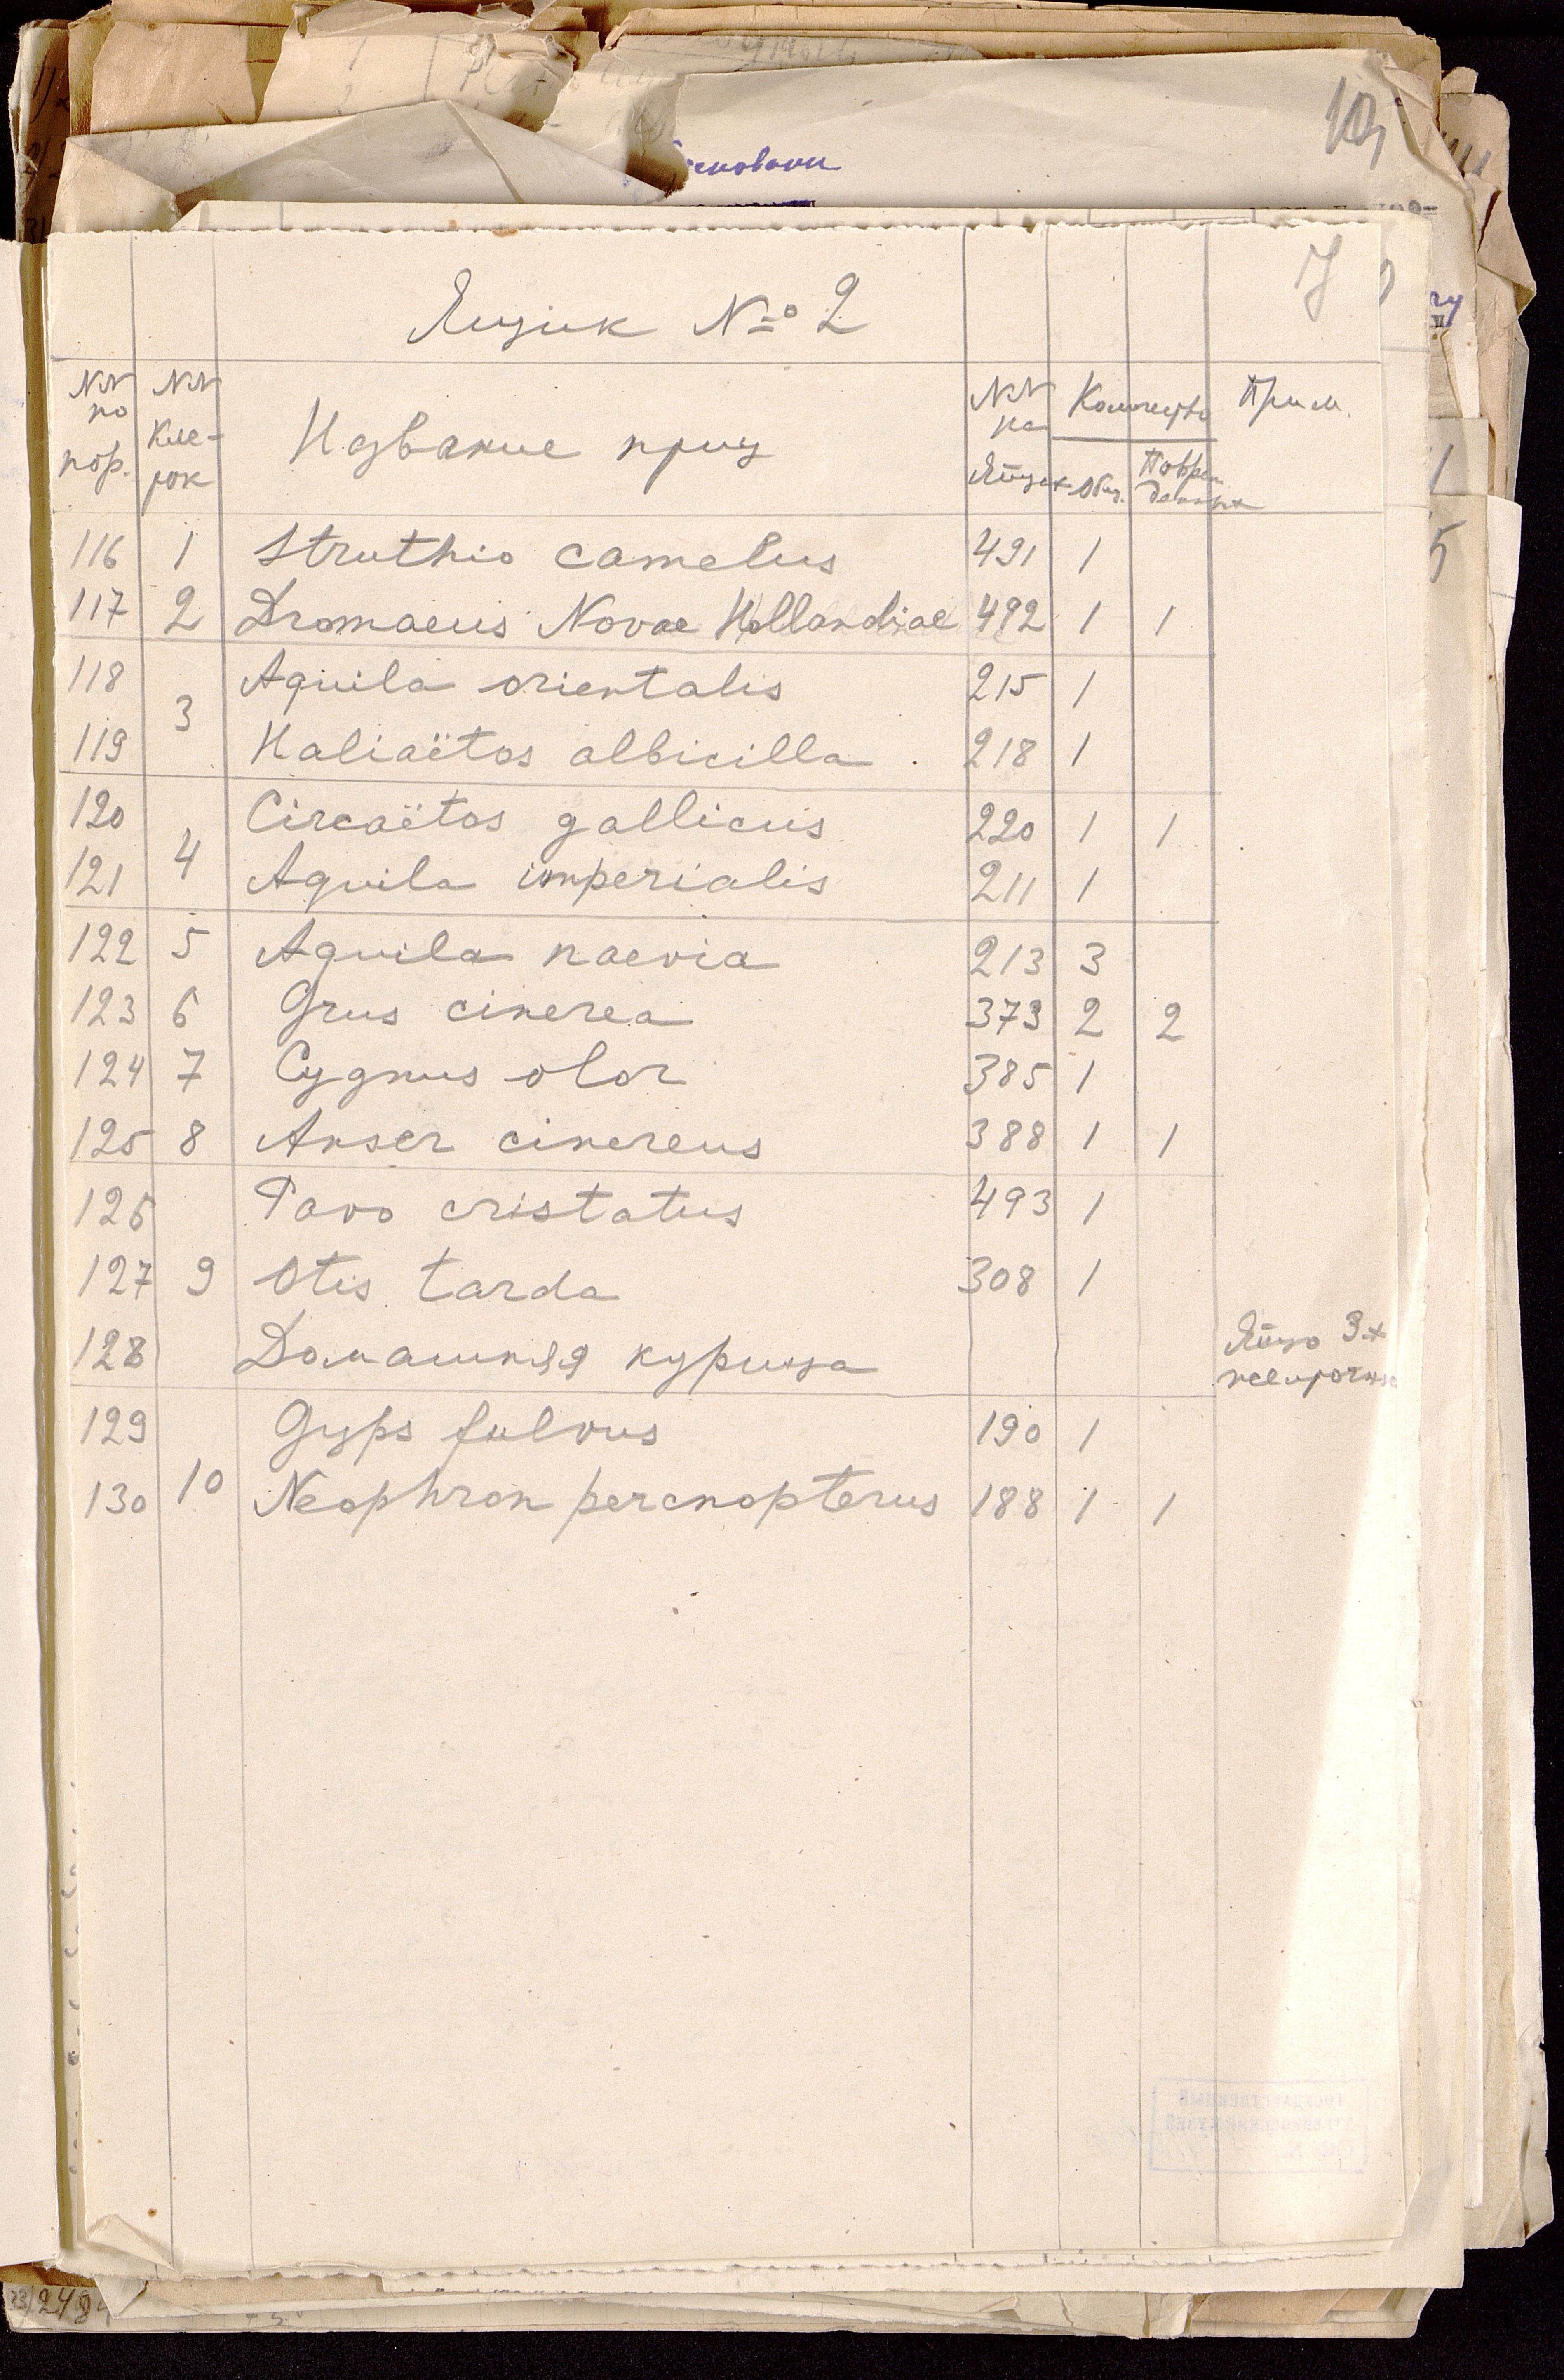 Ящик № 2
7
NN по пор.
NN кле-ток
Название птиц
NN на
Количество
Общ.
Повреж денных
Прим.
116 1 Struthio camelus 491 1
117 2 Dromaeus Novae Hollandiae 492 1 1
118 Aquila orientalis 215 1
3
119 Haliaëtos albicilla 218 1
120 Circaëtos gallicus 220 1 1
4
121 Aquila imperialis 211 1
122 5 Aquila naevia 213 3
123 6 Grus cinerea 373 2 2
124 7 Cygnus olor 385 1
125 8 Anser cinereus 388 1 1
126 Pavo cristatus 493 1
127 9 Otis tarda 308 1
128 Домашняя курица
129 Gyps fulvus 190 1
10
130 Neophron percnopterus 188 1 1